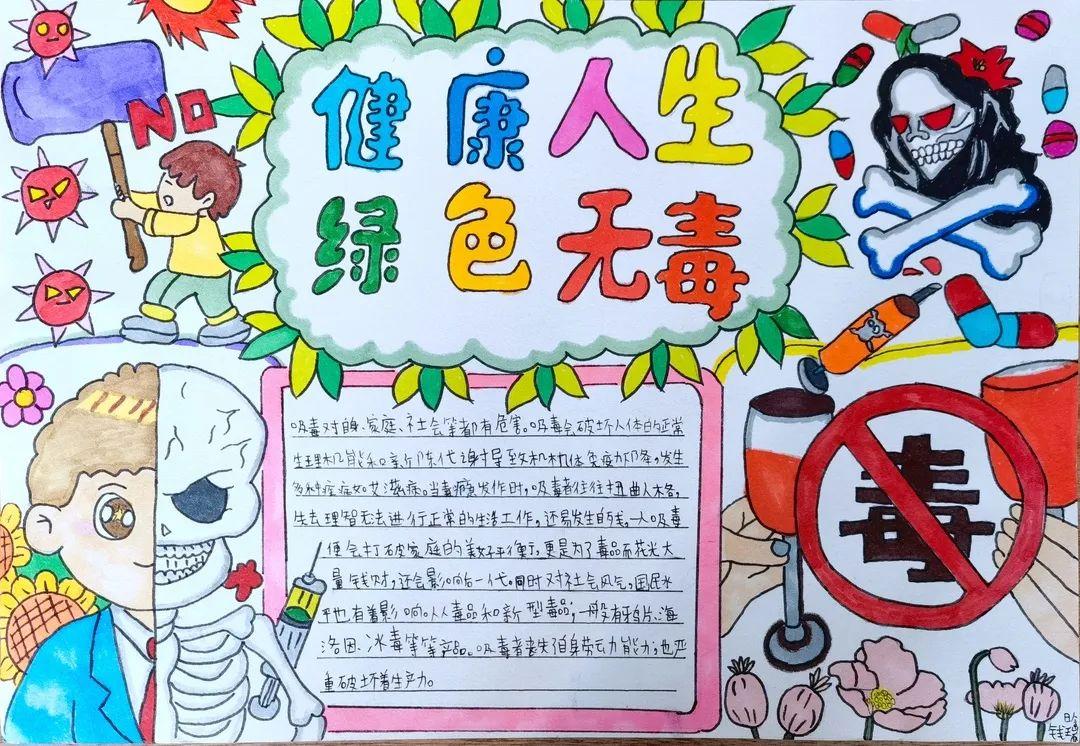 NO
健康人生
绿色无毒
吸毒对自身、家庭、社会等都有危害。吸毒会破坏人体的正常
生理机能和新陈代谢导致机体免疫力下降,发生
多种症如艾滋病。当毒瘾发作时,吸毒者往往扭曲人格,
失去理智无法进行正常的生活工作,还易发生自残。一人吸毒
便会打破家庭的美好平衡,更是为了毒品而花光大
量钱财,还会影响后一代。同时对社会风气,国民水
平也有着影响。从毒品和新型毒品;一般有鸦片、海
洛因、冰毒等等产品。吸毒者丧失自身劳动能力,也严
重破坏着生产力。
毒